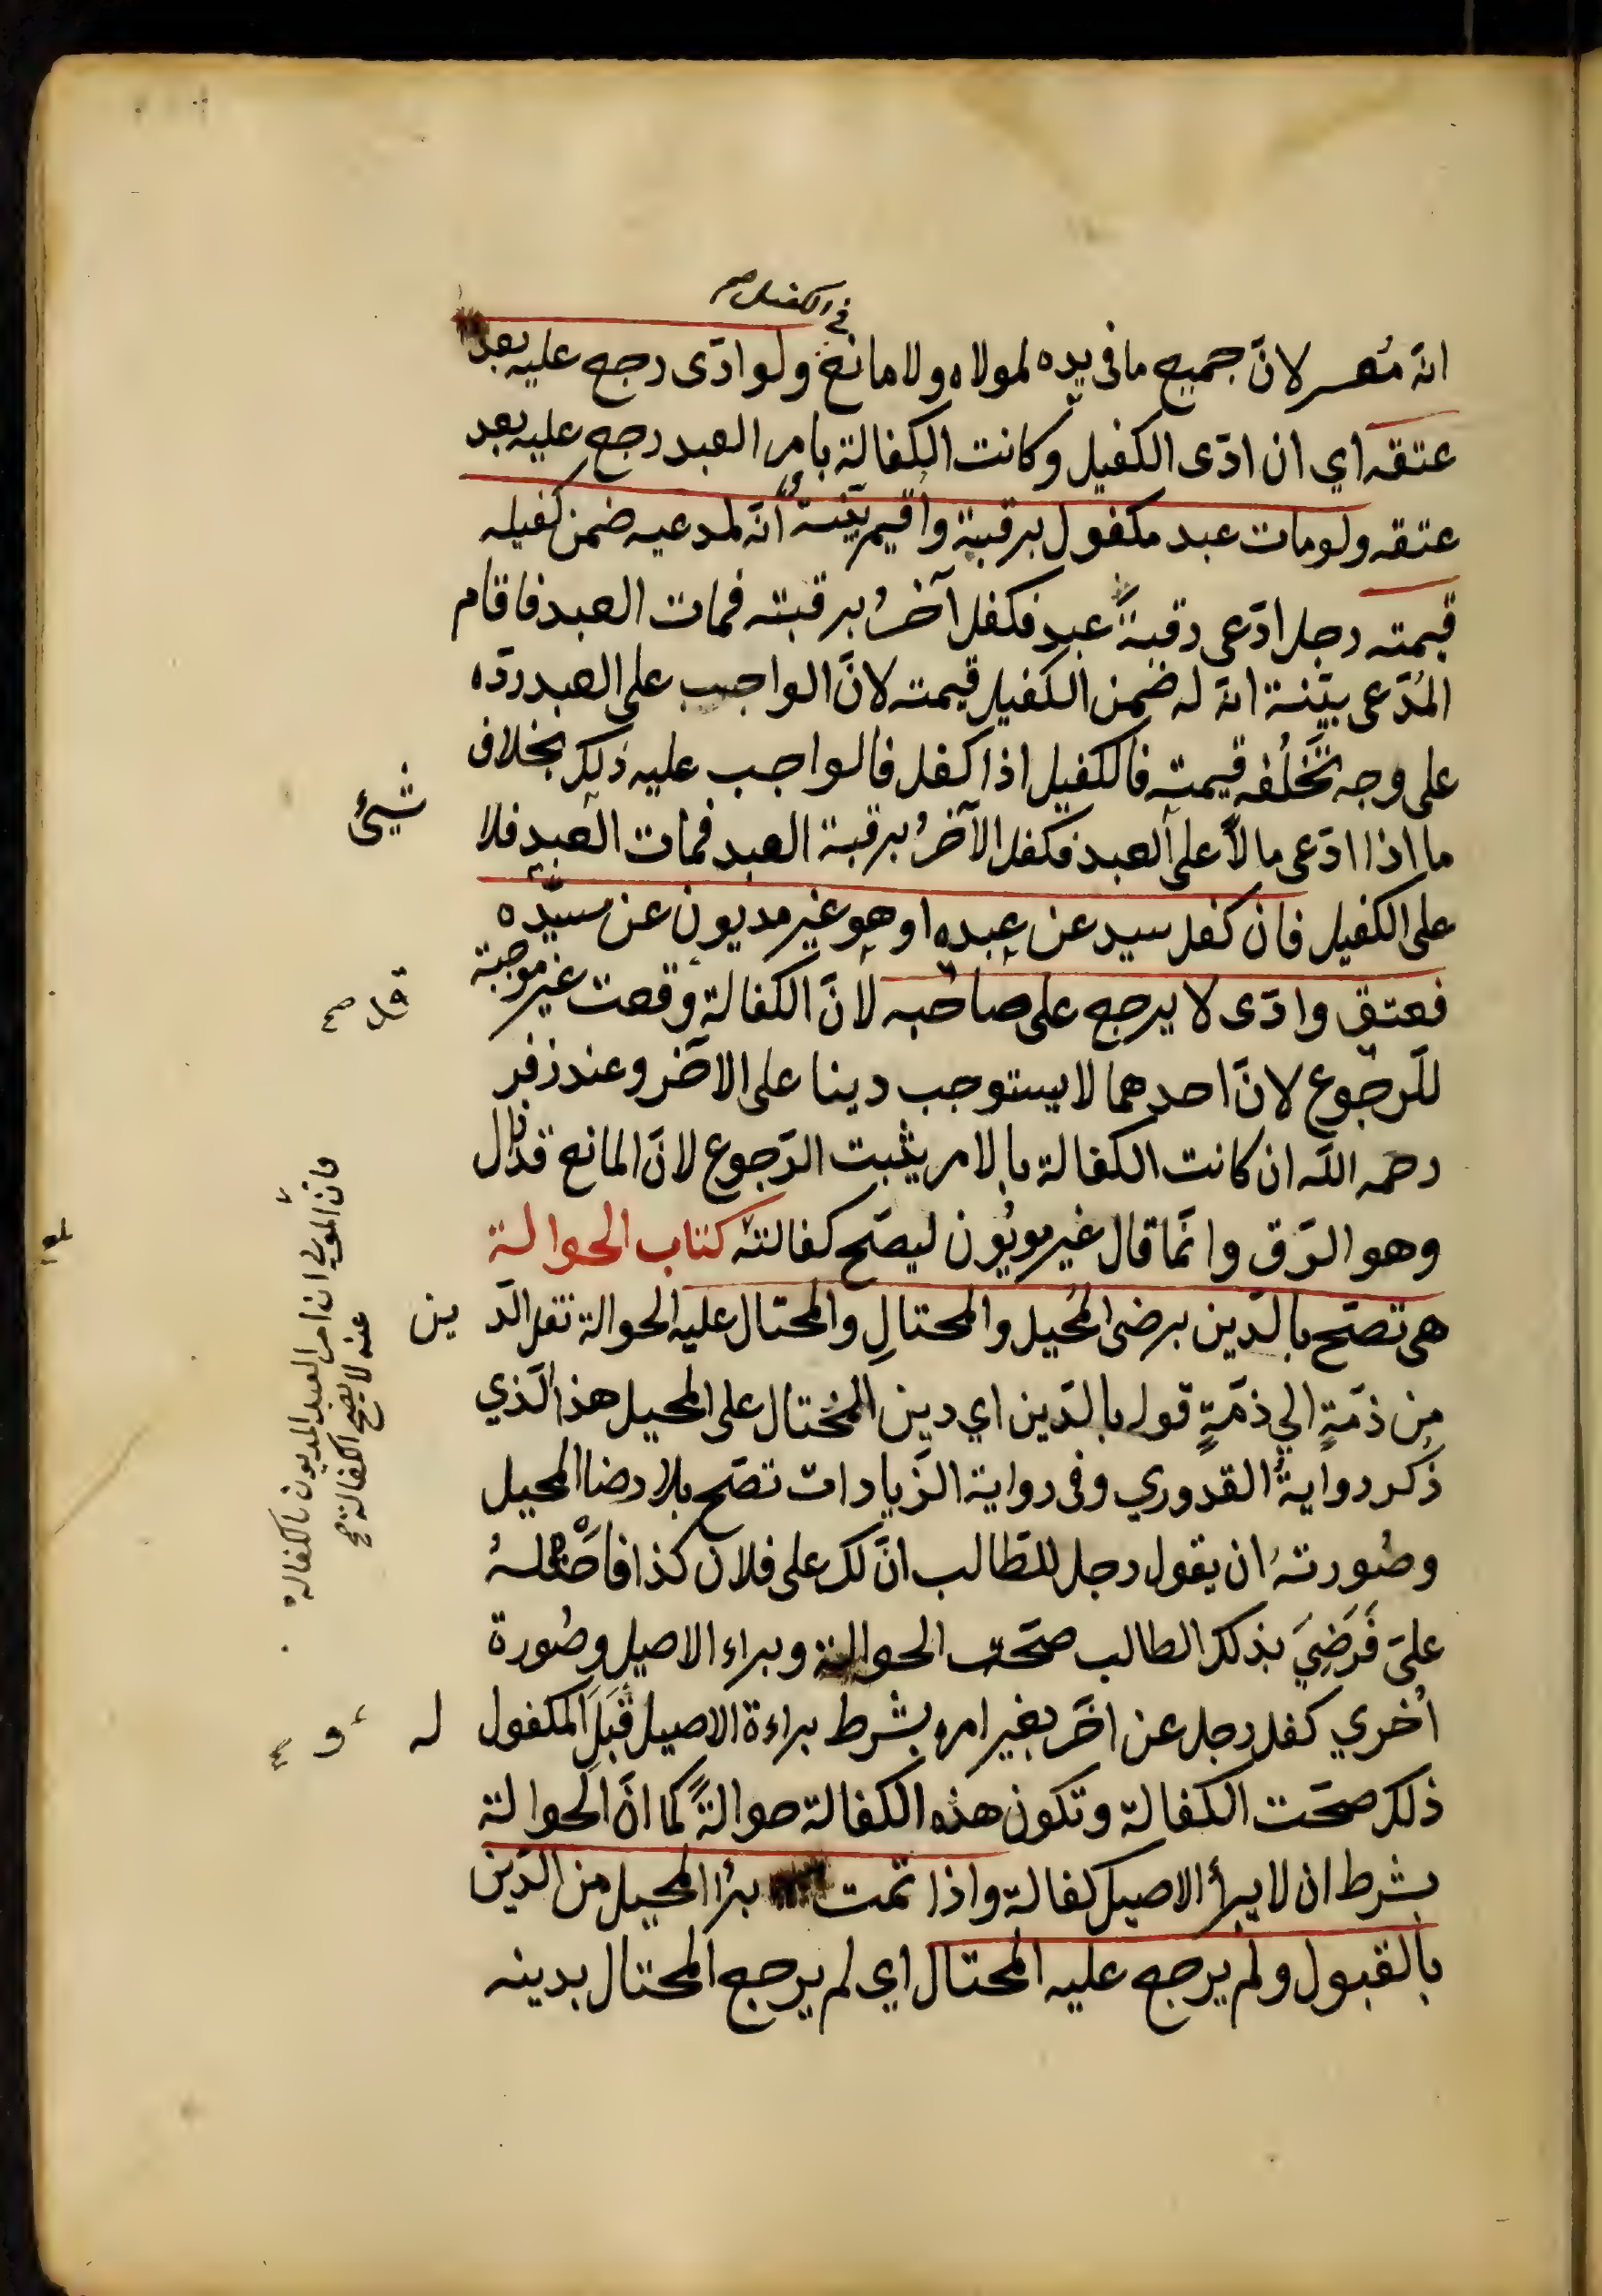 في الكفيل صح
انه مُعسر لانّ جميع ما في يده لمولاه ولا مانع ولو ادّى رجع عليه بعد
عتقه اي ان ادّى الكفيل وكانت الكفالة بامر العبد رجع عليه بعد
عتقه ولو مات عبد مكفول برقبته واُقيم بيّنةٌ انّه لمدعيه ضمن كفيله
قيمته رجل ادّعى رقبةَ عبد فكفل آخرُ برقبته فمات العبد فاقام
المُدّعى بيّنة انّه له ضمن الكفيل قيمته لانّ الواجب على العبد ردّه
على وجه تَخْلُفه قيمته فالكفيل اذا كفل فالواجب عليه ذلك بخلاف
ما اذا ادّعى مالاً على العبد فكفل الآخرُ برقبة العبد فمات العبد فلا
شيئ
على الكفيل فان كفل سيد عن عبده او هو غير مديون عن سيّده
فعتق وادّى لا يرجع على صاحبه لانّ الكفالة وقعت غير موجبة
للرّجوع لانّ احدهما لا يستوجب دينا على الآخر وعند زفر
رحمه اللّه ان كانت الكفالة بالامر يثبت الرّجوع لانّ المانع قد زال
وهو الرّق وانّما قال غير مويُون ليصّح كفالته كتاب الحوالة
هى تصّح بالدّين برضى المُحيل والمحتالِ والمحتال عليه الحوالة نقل الدّ ين
مِن ذمّةٍ الي ذمّةٍ قوله بالدّين اي دين المُحتال على المحيل هذا الّذي
ذكر روايةُ القدوري وفى رواية الزّيادات تصّح بلا رضا المحيل
وصُورتهُ ان يقول رجل للطّالب انّ لك على فلان كذا فاَحْتَلهُ
علىّ فَرَضِيَ بذلك الطالب صحّت الحوالة وبراء الاصيل وصُورة
اُخري كفل رجل عن اخَر بغير امره بشرط براءة الاصيل قَبِلَ المكفول
له و
ذلك صحّت الكفالة وتكون هذه الكفالة حوالةً كما انّ الحوالة
بشرط ان لا يبرأ الاصيل كفالة واذا تمت برُا المحيل من الدّين
بالقبول ولم يرجع عليه المحتال اي لم يرجع المحتال بدينه
فانّ المولى ان امر العبد المديون بالكفالة
عنه لا يصح الكفالة صح